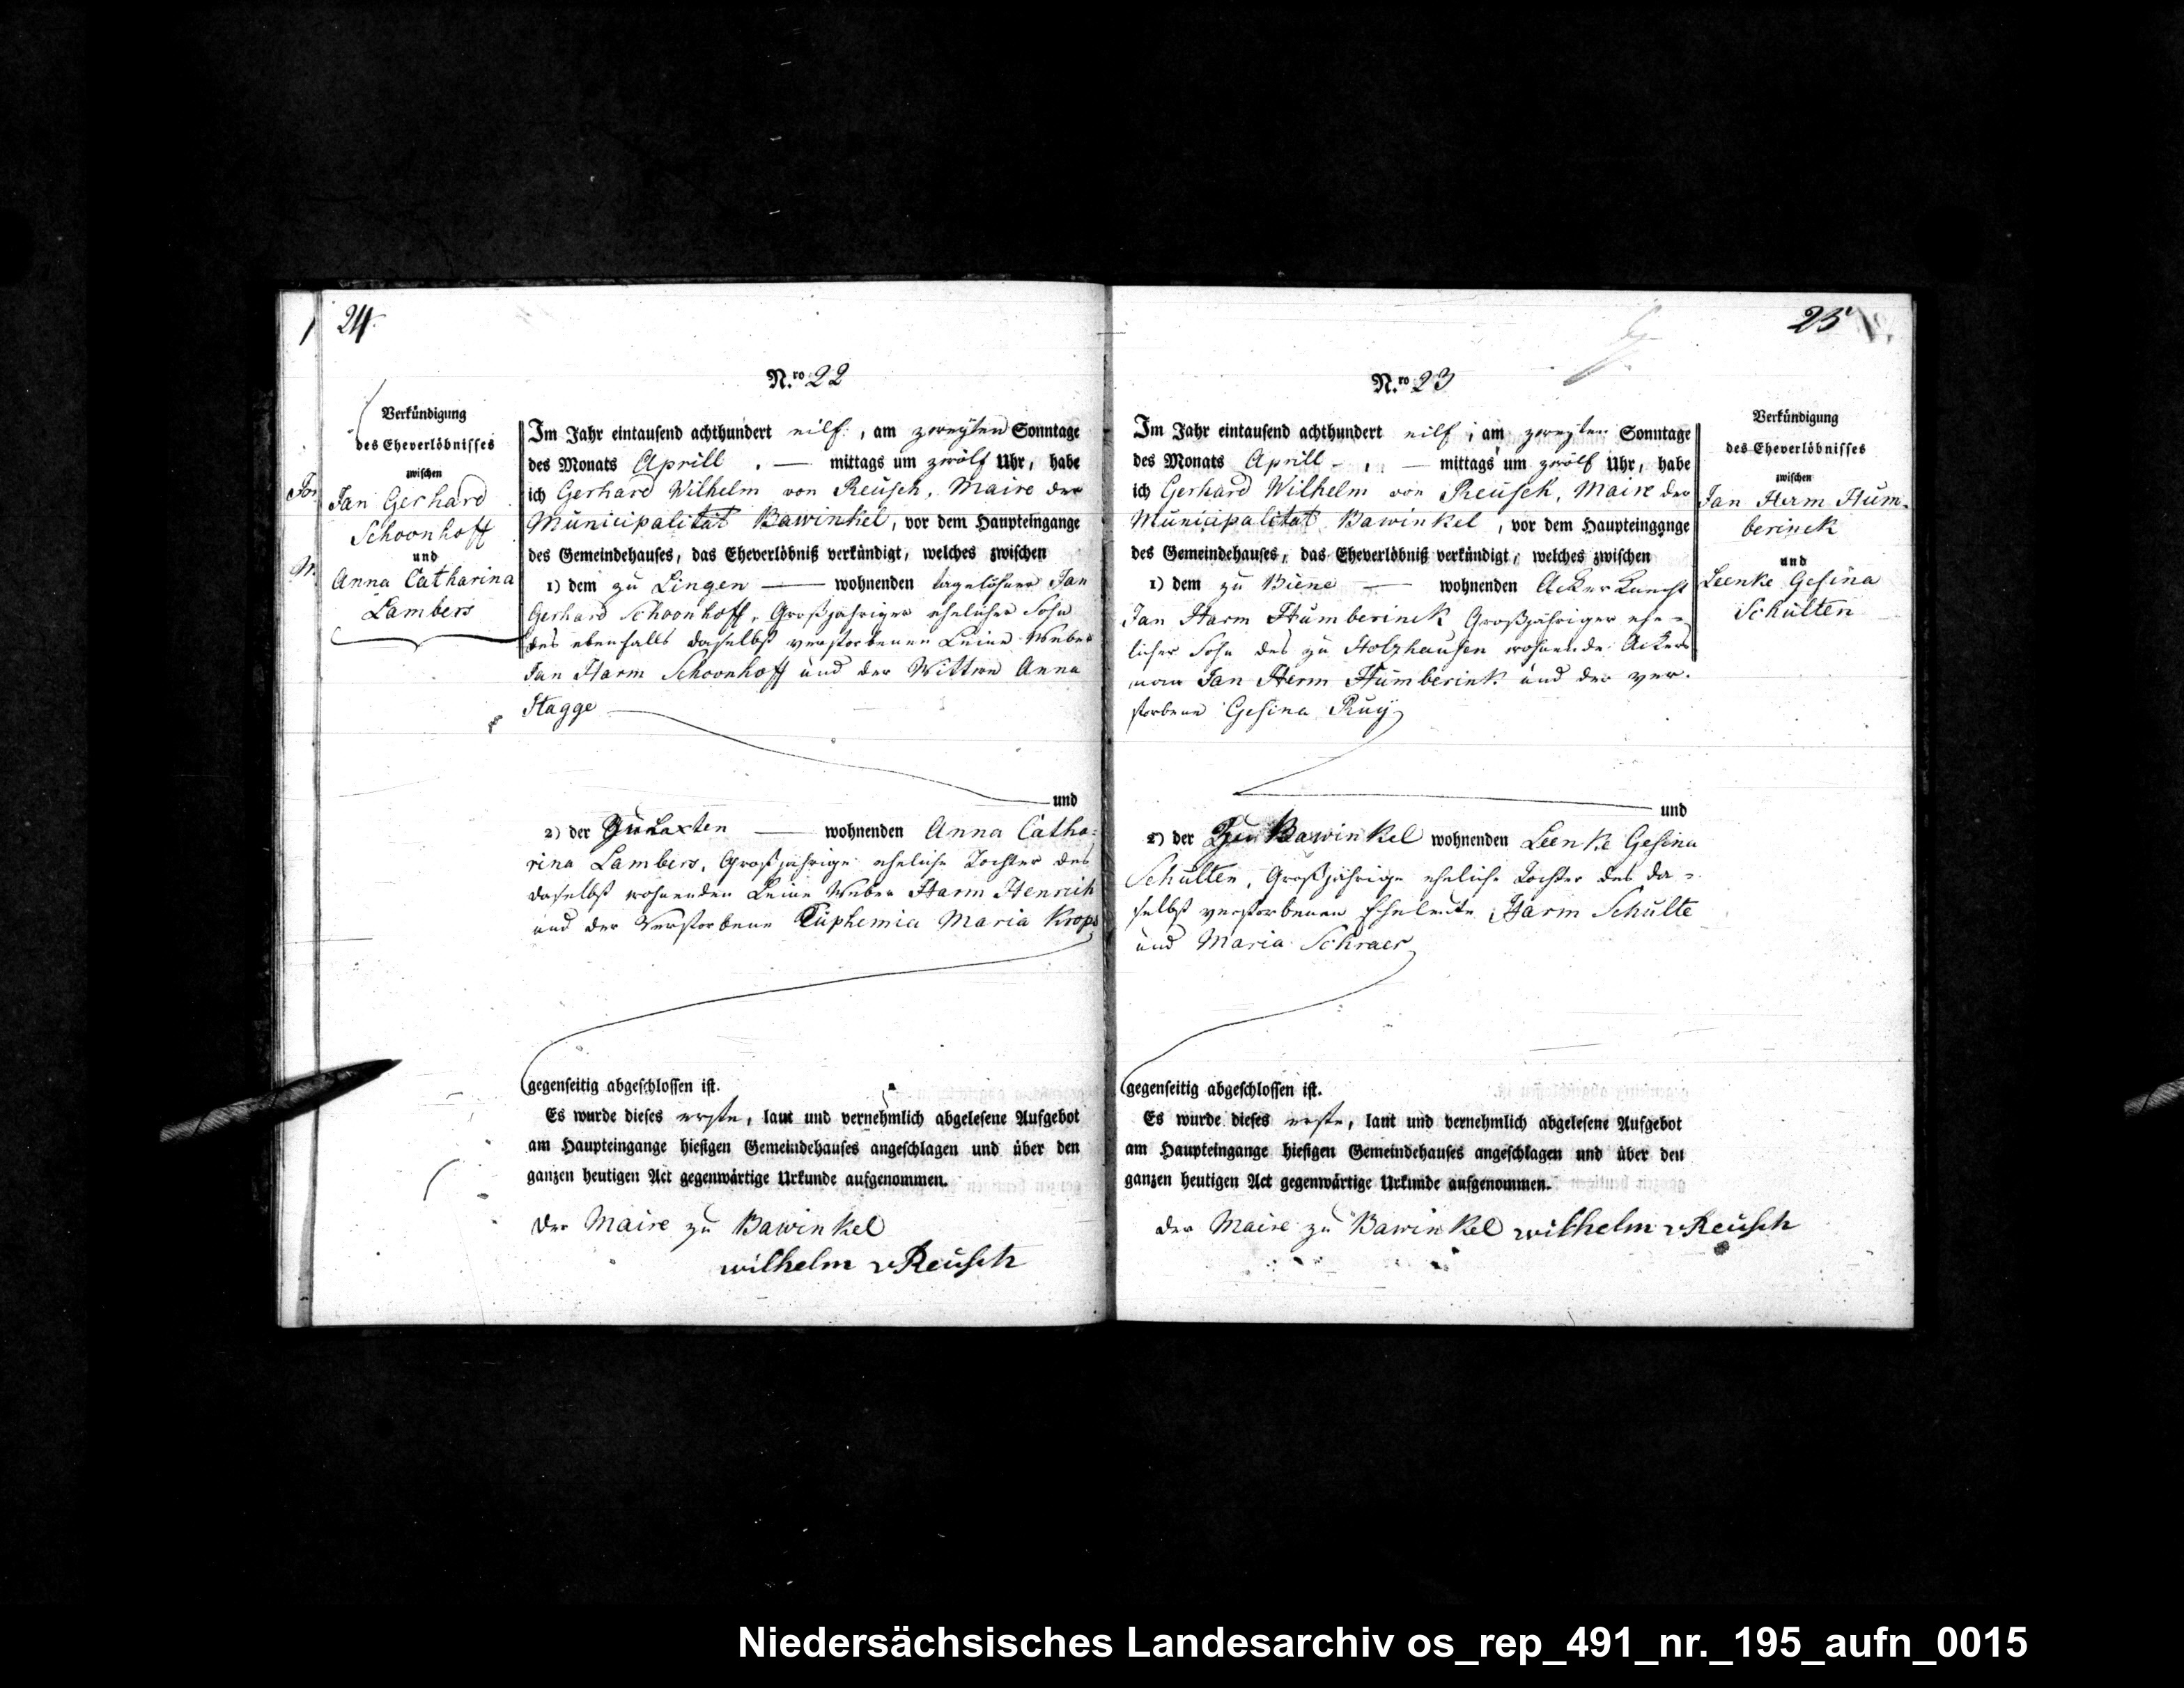 24.
N.ro 22
Verkündigung
des Eheverlöbnisses
zwischen
Jan Gerhard
Schoonhoff
und
Anna Catharina
Lambers
Im Jahr eintausend achthundert eilf, am zweyten Sonntage
des Monats Aprill. — mittags um zwölf Uhr, habe
ich Gerhard Wilhelm von Reusch, Maire der
Municipalität Bawinkel, vor dem Haupteingange
des Gemeindehauses, das Eheverlöbniß verkündigt, welches zwischen
1) dem zu Lingen — wohnenden tagelöhner Jan
Gerhard Schoonhoff, Großjähriger ehelicher Sohn
des ebenfalls daselbst verstorbenen Leine Weber
Jan Harm Schoonhoff und der Wittwe Anna
Hagge
und
2) der Zu Laxten — wohnenden Anna Catha-
rina Lambers, Großjährige eheliche Tochter des
daselbst wohnenden Leine Weber Harm Henrich
und der Verstorbene Euphemia Maria Krops
gegenseitig abgeschlossen ist.
Es wurde dieses erste, laut und vernehmlich abgelesene Aufgebot
am Haupteingange hiesigen Gemeindehauses angeschlagen und über den
ganzen heutigen Act gegenwärtige Urkunde aufgenommen.
Der Maire zu Bawinkel
wilhelm v Reusch
25
N.ro 23
Im Jahr eintausend achthundert eilf, am zweyten Sonntage
des Monats Aprill - . — mittags um zwölf Uhr, habe
ich Gerhard Wilhelm von Reusch, Maire der
Municipalitat Bawinkel, vor dem Haupteingange
des Gemeindehauses, das Eheverlöbniß verkündigt, welches zwischen
1) dem zu Biene — wohnenden Acker Knecht
Jan Harm Humberinck Großjähriger ehe-
licher Sohn des zu Holzhausen wohnende Ackers
man Jan Herm Humberink und der ver-
storbene Gesina Ruy
und
2) der Zu Bawinkel wohnenden Leenke Gesina
Schulten, Großjährige eheliche Tochter des da-
selbst verstorbenen Eheleute Harm Schulte
und Maria Schraer
gegenseitig abgeschlossen ist.
Es wurde dieses erste, laut und vernehmlich abgelesene Aufgebot
am Haupteingange hiesigen Gemeindehauses angeschlagen und über den
ganzen heutigen Act gegenwärtige Urkunde aufgenommen.
Der Maire zu Bawinkel wilhelm v Reusch
Verkündigung
des Eheverlöbnisses
zwischen
Jan Herm Hum-
berinck
und
Leenke Gesina
Schulten
Niedersächsisches Landesarchiv os_rep_491_nr._195_aufn_0015